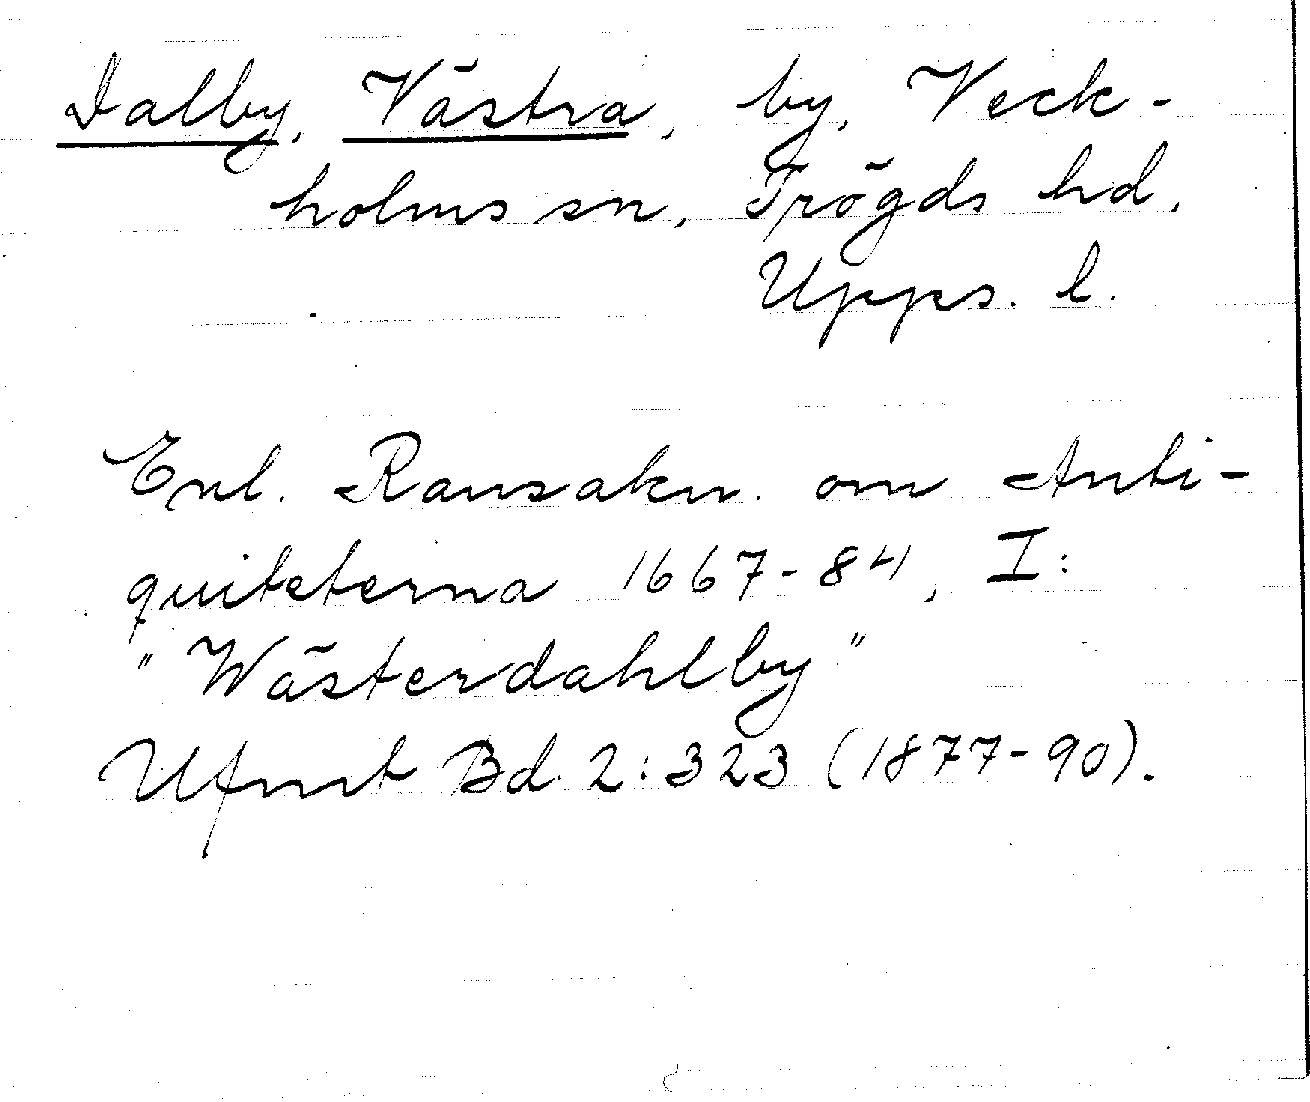 Dalby, Västra, by, Veck-
holms sn, Trögds hd,
Upps. l.
Enl. Ransakn. om Anti-
quiteterna 1667-84, I:
"Wästerdahlby"
Ufmt Bd 2:323 (1877-90).